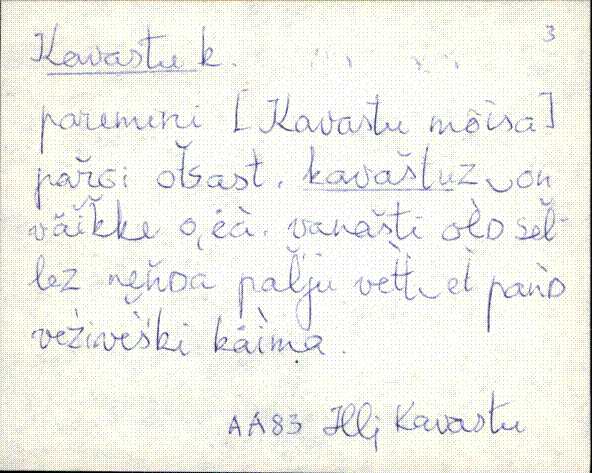 3
Kavastu k.
paremini [Kavastu mõisa]
păŕɢi otsast. kavaštuz‿on
väĭkke o̬ja. vanašti olᴅ sel-
lez neńᴅa paĺju vètt‿et pańᴅ
veziveški käima.
AA83 Hlj Kavastu